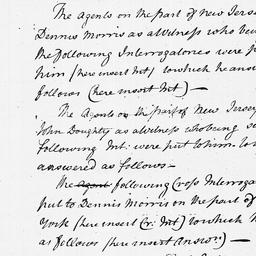 The Agents on the part of New Jerse
Dennis Morris as a Witness who bei
the following Interrogatories were p
him (here insert Int) to which he ans
follows (here insert Int) —
The Agents on the part of New Jersey
John Doughty as a Witness who being s
following Int. were put to him to
answered as follows —
The Agent following Cross Interroga
put to Dennis Morris on the part of
York (here insert Cr. Int) to which h
as follows (here insert answr.) —